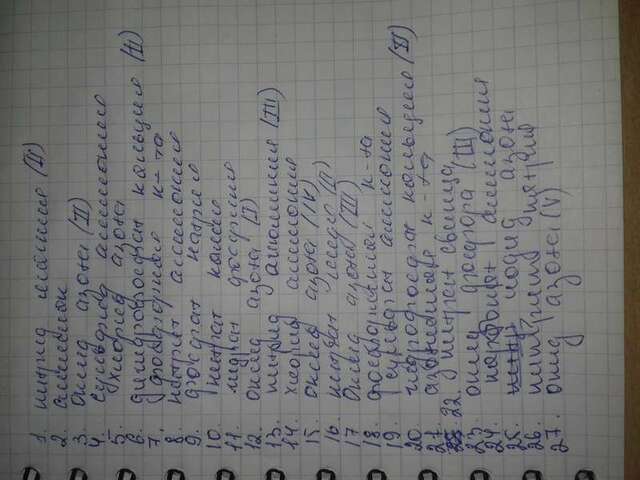 1. нитрид магния (II)
2. аммиак
3. оксид азота (II)
4. сульфид аммония
5. хлорид азота
6. дигидрофосфат кальция (II)
7. фосфорная к-та
8. нитрит аммония
9. фосфат натрия
10. нитрат калия
11. гидрат фосфина
12. оксид азота (I)
13. нитрид алюминия (III)
14. хлорид аммония
15. оксид азота (IV)
16. нитрат меди (II)
17. Оксид азота (III)
18. к-та
19. сульфат аммония
20. гидрофосфат кальция (II)
21. азотистая к-та
22. нитрат свинца
23. оксид фосфора (III)
24. карбонат аммония
25. йодид азота
26. нитрит натрия
27. оксид азота (V)